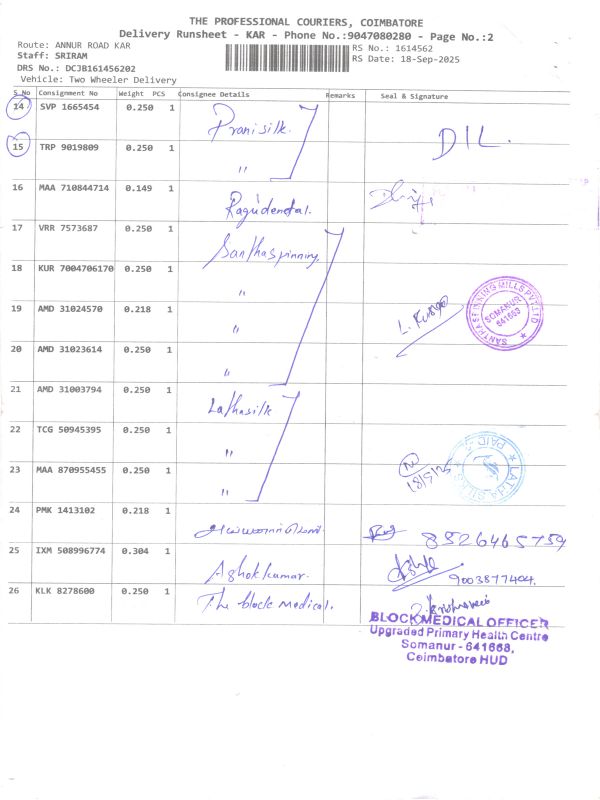 THE PROFESSIONAL COURIERS, COIMBATORE
Delivery Runsheet - KAR - Phone No.:9047080280 - Page No.:2
Route: ANNUR ROAD KAR
RS No.: 1614562
Staff: SRIRAM
RS Date: 18-Sep-2025
DRS No.: DCJB161456202
Vehicle: Two Wheeler Delivery
S No Consignment No Weight PCS Consignee Details Remarks Seal & Signature
14 SVP 1665454 0.250 1 Pranisilk.
15 TRP 9019809 0.250 1 " DIL.
16 MAA 710844714 0.149 1 Ragudendal.
17 VRR 7573687 0.250 1 Santhaspinning
18 KUR 7004706170 0.250 1 "
19 AMD 31024570 0.218 1 "
SANTHA SPINNING MILLS PVT LTD
SOMANUR
641668
20 AMD 31023614 0.250 1 "
21 AMD 31003794 0.250 1 Lathasilk
22 TCG 50945395 0.250 1 "
23 MAA 870955455 0.250 1 "
24 PMK 1413102 0.218 1 8526465759
25 IXM 508996774 0.304 1 Ashokkumar.
9003877404.
26 KLK 8278600 0.250 1 The block Medical.
BLOCK MEDICAL OFFICER
Upgraded Primary Health Centre
Somanur - 641668,
Coimbatore HUD